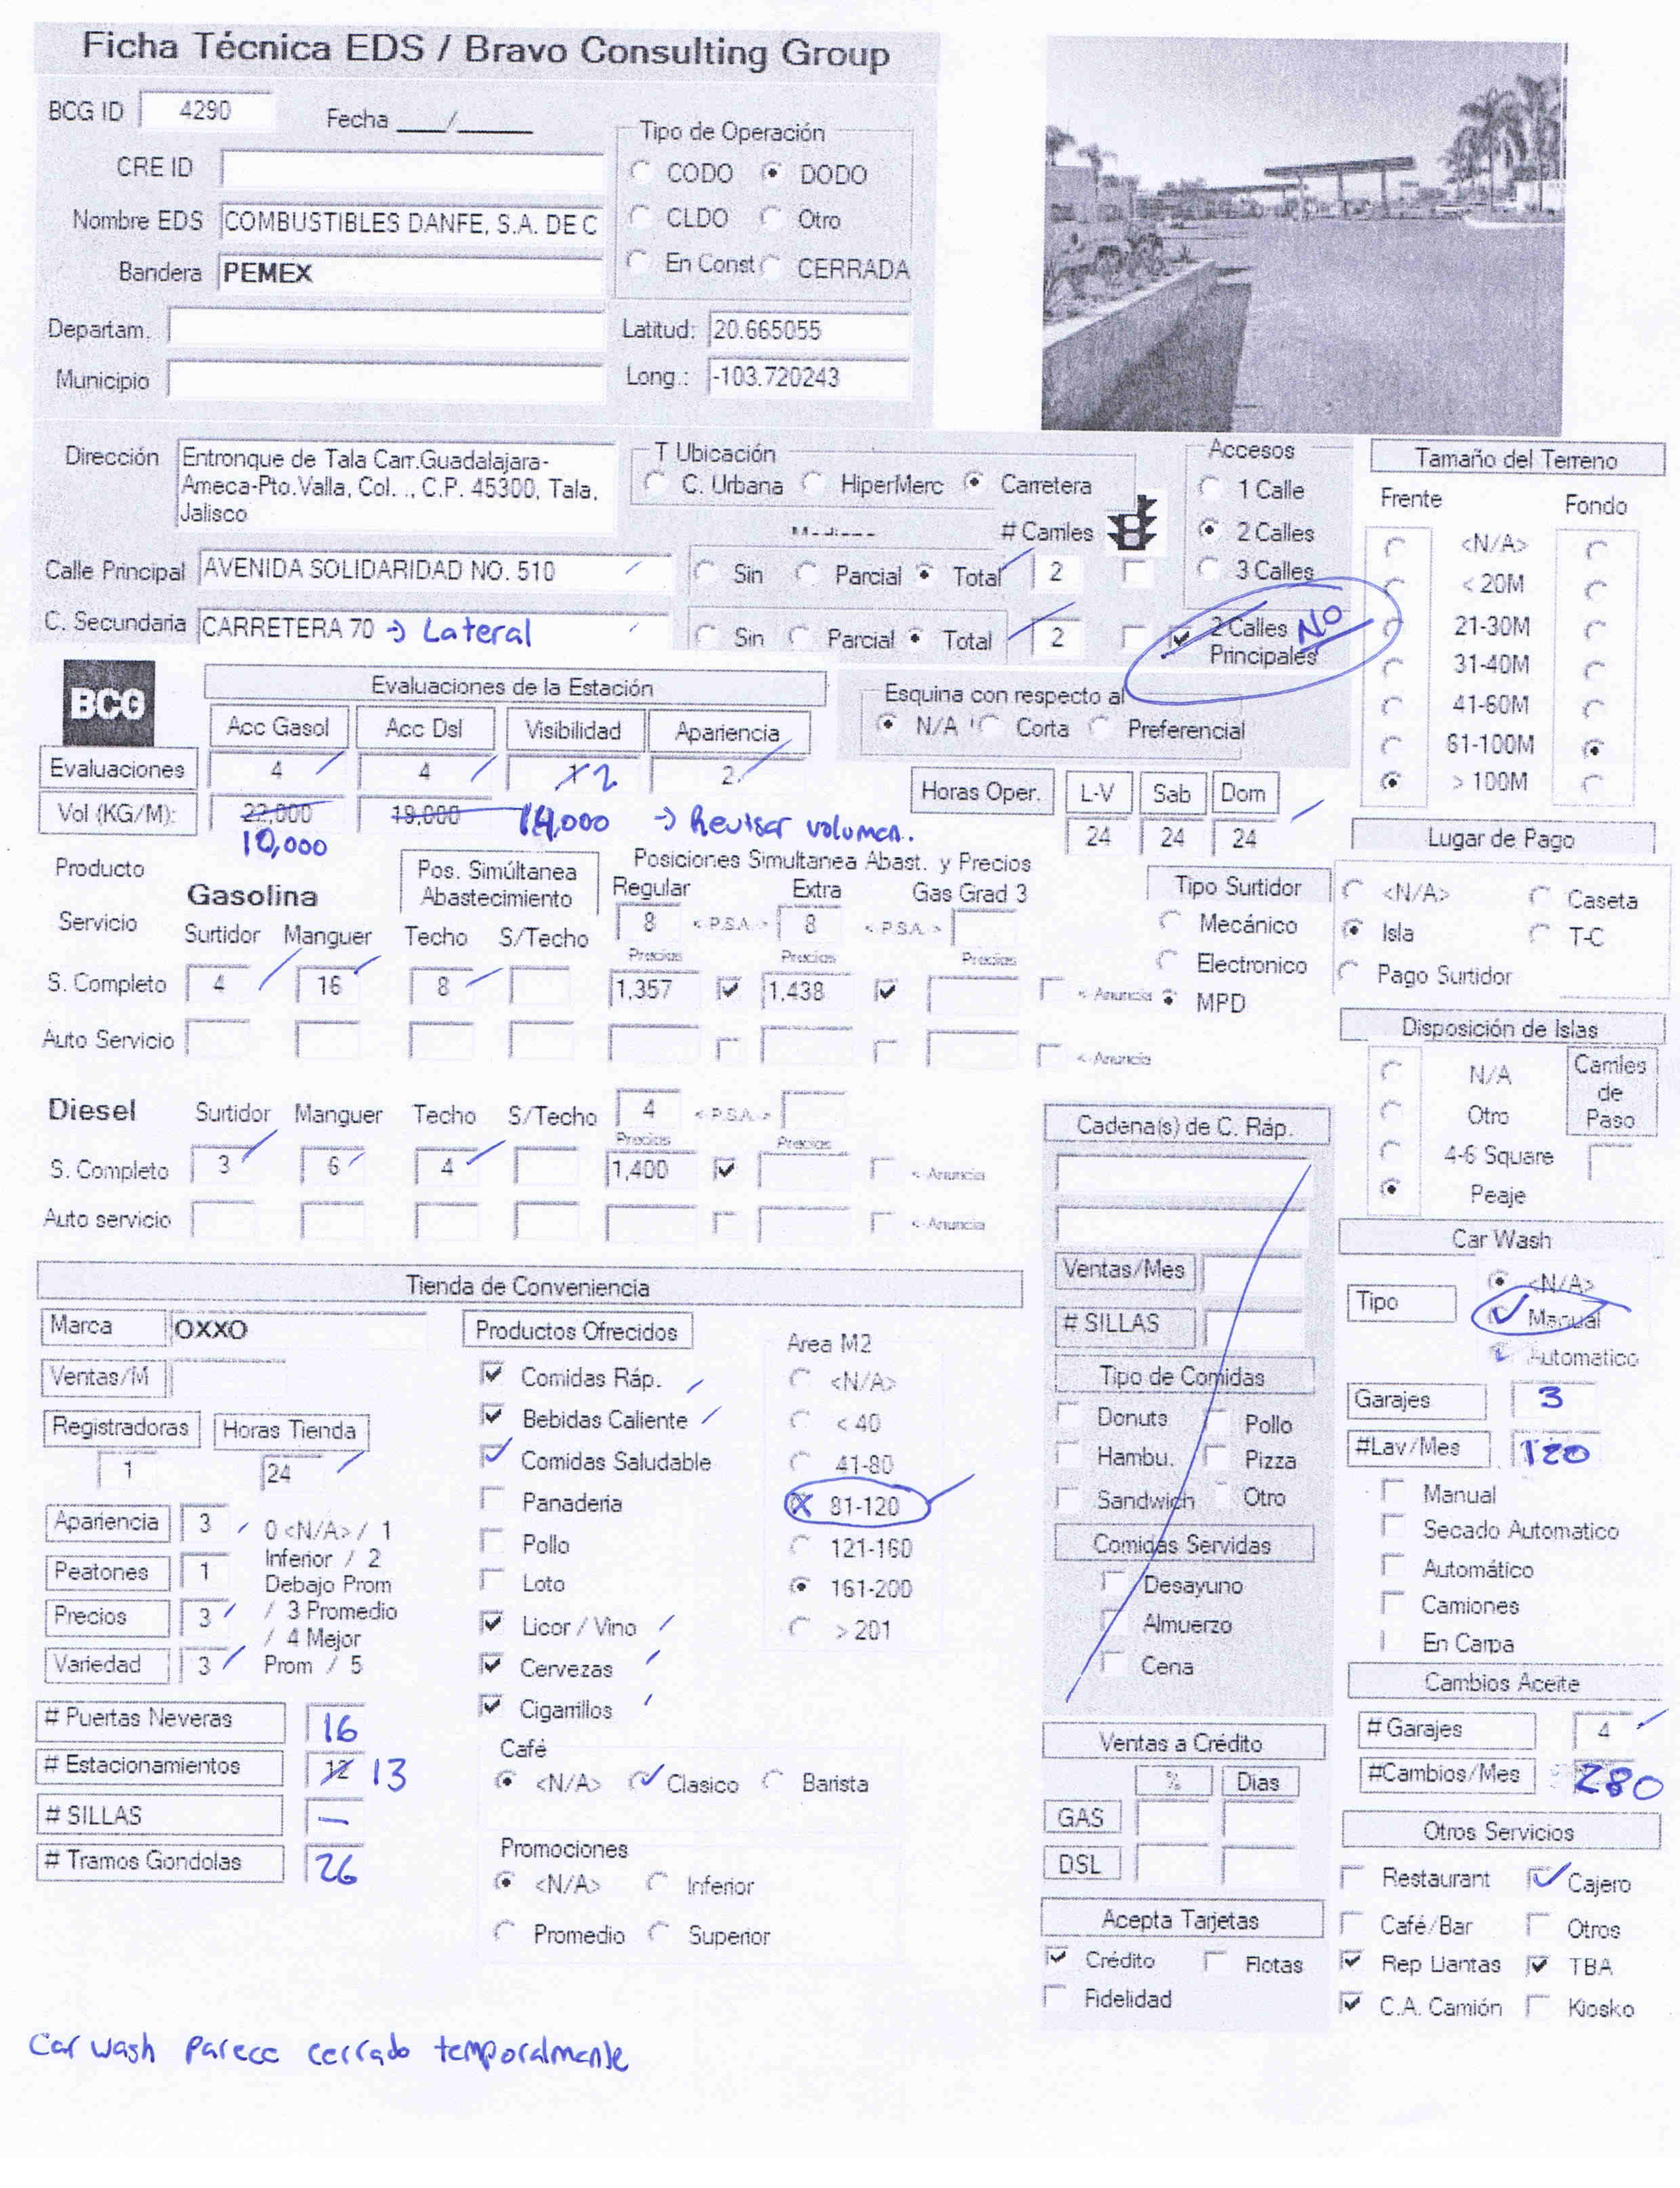 Ficha Técnica EDS / Bravo Consulting Group
BCG ID 4290 Fecha ___/_____
Tipo de Operación
CRE ID
CODO DODO
Nombre EDS COMBUSTIBLES DANFE, S.A. DE C
CLDO Otro
Bandera PEMEX
En Const CERRADA
Departam.
Latitud: 20.665055
Municipio
Long.: -103.720243
Dirección Entronque de Tala Carr.Guadalajara-
Ameca-Pto.Valla, Col. ., C.P. 45300, Tala,
Jalisco
T Ubicación
C. Urbana HiperMerc Carretera
Accesos
1 Calle
2 Calles
3 Calles
# Carriles
Calle Principal AVENIDA SOLIDARIDAD NO. 510
Sin Parcial Total 2
C. Secundaria CARRETERA 70 → Lateral
Sin Parcial Total 2
2 Calles Principales NO
Tamaño del Terreno
Frente Fondo
<N/A>
< 20M
21-30M
31-40M
41-60M
61-100M
> 100M
BCG
Evaluaciones de la Estación
Acc Gasol Acc Dsl Visibilidad Apariencia
Evaluaciones 4 4 1 2 2
Vol (KG/M): 22,000 19,000 14,000 → Revisar volumen.
10,000
Esquina con respecto al
N/A Corta Preferencial
Horas Oper. L-V Sab Dom
24 24 24
Lugar de Pago
<N/A> Caseta
Isla T-C
Pago Surtidor
Producto
Servicio
Gasolina
Pos. Simúltanea Abastecimiento
Posiciones Simultanea Abast. y Precios
Regular Extra Gas Grad 3
8 < P.S.A. > 8 < P.S.A. >
Surtidor Manguer Techo S/Techo
Precios Precios Precios
S. Completo 4 16 8 1,357 1,438 <-Anuncia
Auto Servicio <-Anuncia
Tipo Surtidor
Mecánico
Electronico
MPD
Disposición de Islas
N/A
Otro
4-6 Square
Peaje
Carriles de Paso
Diesel Surtidor Manguer Techo S/Techo 4 < P.S.A. >
Precios Precios
S. Completo 3 6 4 1,400 <-Anuncia
Auto servicio <-Anuncia
Cadena(s) de C. Ráp.
Ventas/Mes
# SILLAS
Tipo de Comidas
Donuts Pollo
Hambu. Pizza
Sandwich Otro
Comidas Servidas
Desayuno
Almuerzo
Cena
Car Wash
Tipo
<N/A>
Manual
Automatico
Garajes 3
#Lav/Mes 120
Manual
Secado Automatico
Automático
Camiones
En Carpa
Tienda de Conveniencia
Marca OXXO
Ventas/M
Registradoras Horas Tienda
1 24
Apariencia 3
Peatones 1
Precios 3
Variedad 3
0 <N/A> / 1
Inferior / 2
Debajo Prom
/ 3 Promedio
/ 4 Mejor
Prom / 5
# Puertas Neveras 16
# Estacionamientos 12 13
# SILLAS —
# Tramos Gondolas 26
Productos Ofrecidos
Comidas Ráp.
Bebidas Caliente
Comidas Saludable
Panaderia
Pollo
Loto
Licor / Vino
Cervezas
Cigarrillos
Area M2
<N/A>
< 40
41-80
81-120
121-160
161-200
> 201
Café
<N/A> Clasico Barista
Promociones
<N/A> Inferior
Promedio Superior
Ventas a Crédito
% Dias
GAS
DSL
Acepta Tarjetas
Crédito Flotas
Fidelidad
Cambios Aceite
# Garajes 4
#Cambios/Mes 280
Otros Servicios
Restaurant Cajero
Café/Bar Otros
Rep Llantas TBA
C.A. Camión Kiosko
Car wash parece cerrado temporalmente